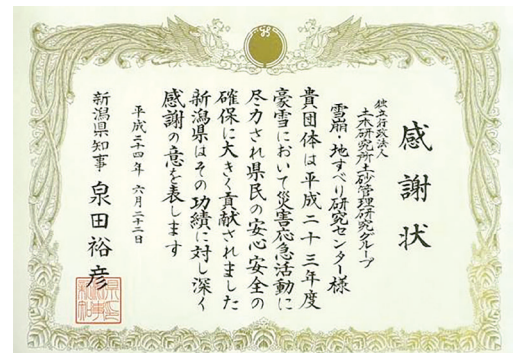 感謝状
独立行政法人
土木研究所土砂管理研究グループ
雪崩・地すべり研究センター様
貴団体は平成二十三年度
豪雪において災害応急活動に
尽力され県民の安心安全の
確保に大きく貢献されました
新潟県はその功績に対し深く
感謝の意を表します
平成二十四年 六月二十二日
新潟県知事 泉田裕彦